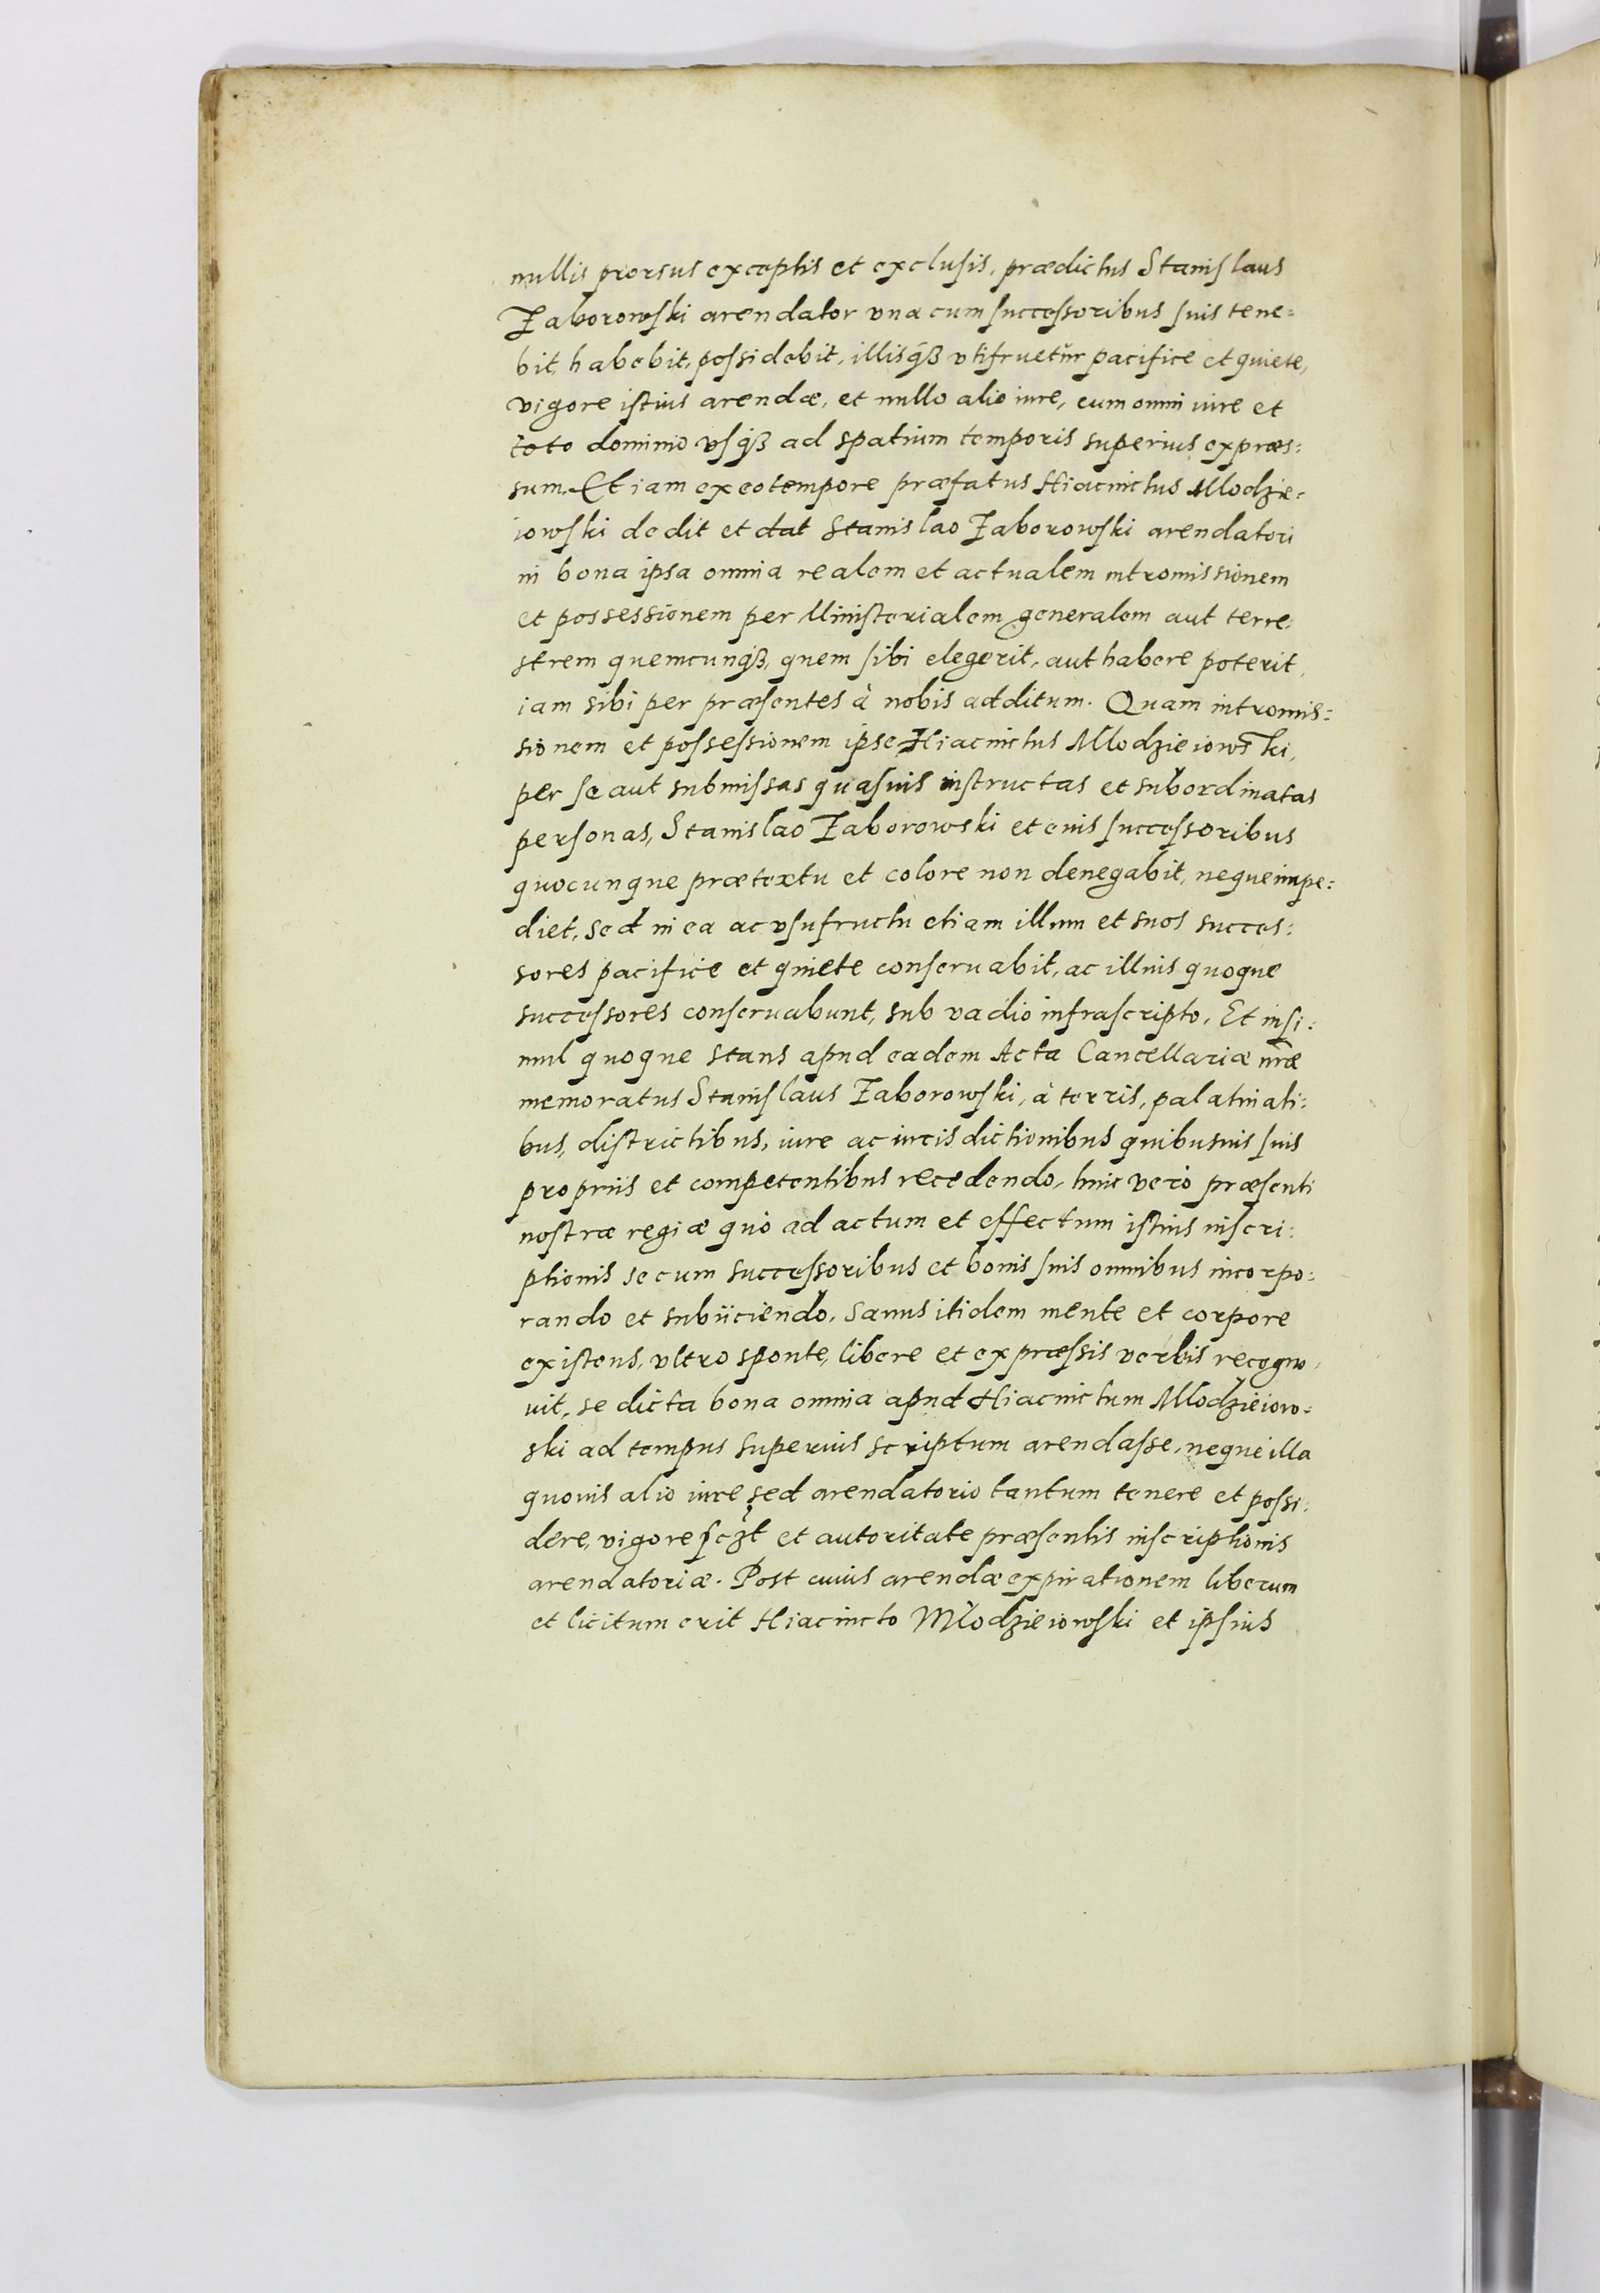 nullis prorsus exceptis et exclusis, prædictus Stanislaus
Zaborowski arendator vna cum successoribus suis tene=
bit, habebit, possidebit, illisq́ꝫ vtifruetur pacifice et quiete,
vigore istius arendæ, et nullo alio iure, cum omni iure et
toto dominio vsq́ꝫ ad spatium temporis superius expræs=
sum. Et iam ex eo tempore præfatus Hiacinctus Mlodzie=
iowski dedit et dat Stanislao Zaborowski arendatori
in bona ipsa omnia realem et actualem intromissionem
et possessionem per Ministerialem generalem aut terre=
strem quemcunq́ꝫ, quem sibi elegerit, aut habere poterit,
iam sibi per præsentes à nobis additum. Quam intromis=
sionem et possessionem ipse Hiacinctus Mlodzieiowski,
per se aut submissas quasuis instructas et subordinatas
personas, Stanislao Zaborowski et euis successoribus
quocunque prætextu et colore non denegabit, neque impe=
diet, sed in ea ac vsufructu etiam illum et suos succes=
sores pacifice et quiete conseruabit, ac illius quoque
successores conseruabunt, sub vadio infrascripto. Et insi=
mul quoque stans apud eadem Acta Cancellariæ nr̃æ
memoratus Stanislaus Zaborowski, à terris, palatinati=
bus, districtibus, iure ac iurisdictionibus quibusuis suis
proprijs et competentibus recedendo, huic verò præsenti
nostræ regiæ quò ad actum et effectum istius inscri=
ptionis se cum successoribus et bonis suis omnibus incorpo=
rando et subijciendo, sanus itidem mente et corpore
existens, vltro sponte, libere et expræssis verbis recogno=
uit, se dicta bona omnia apud Hiacinctum Mlodzieiow=
ski ad tempus superius scriptum arendasse, neque illa
quouis alio iure sed arendatorio tantum tenere et possi=
dere, vigore sczt et autoritate præsentis inscriptionis
arendatoriæ. Post cuius arendæ expirationem liberum
et licitum erit Hiacincto Młodzieiowski et ipsius